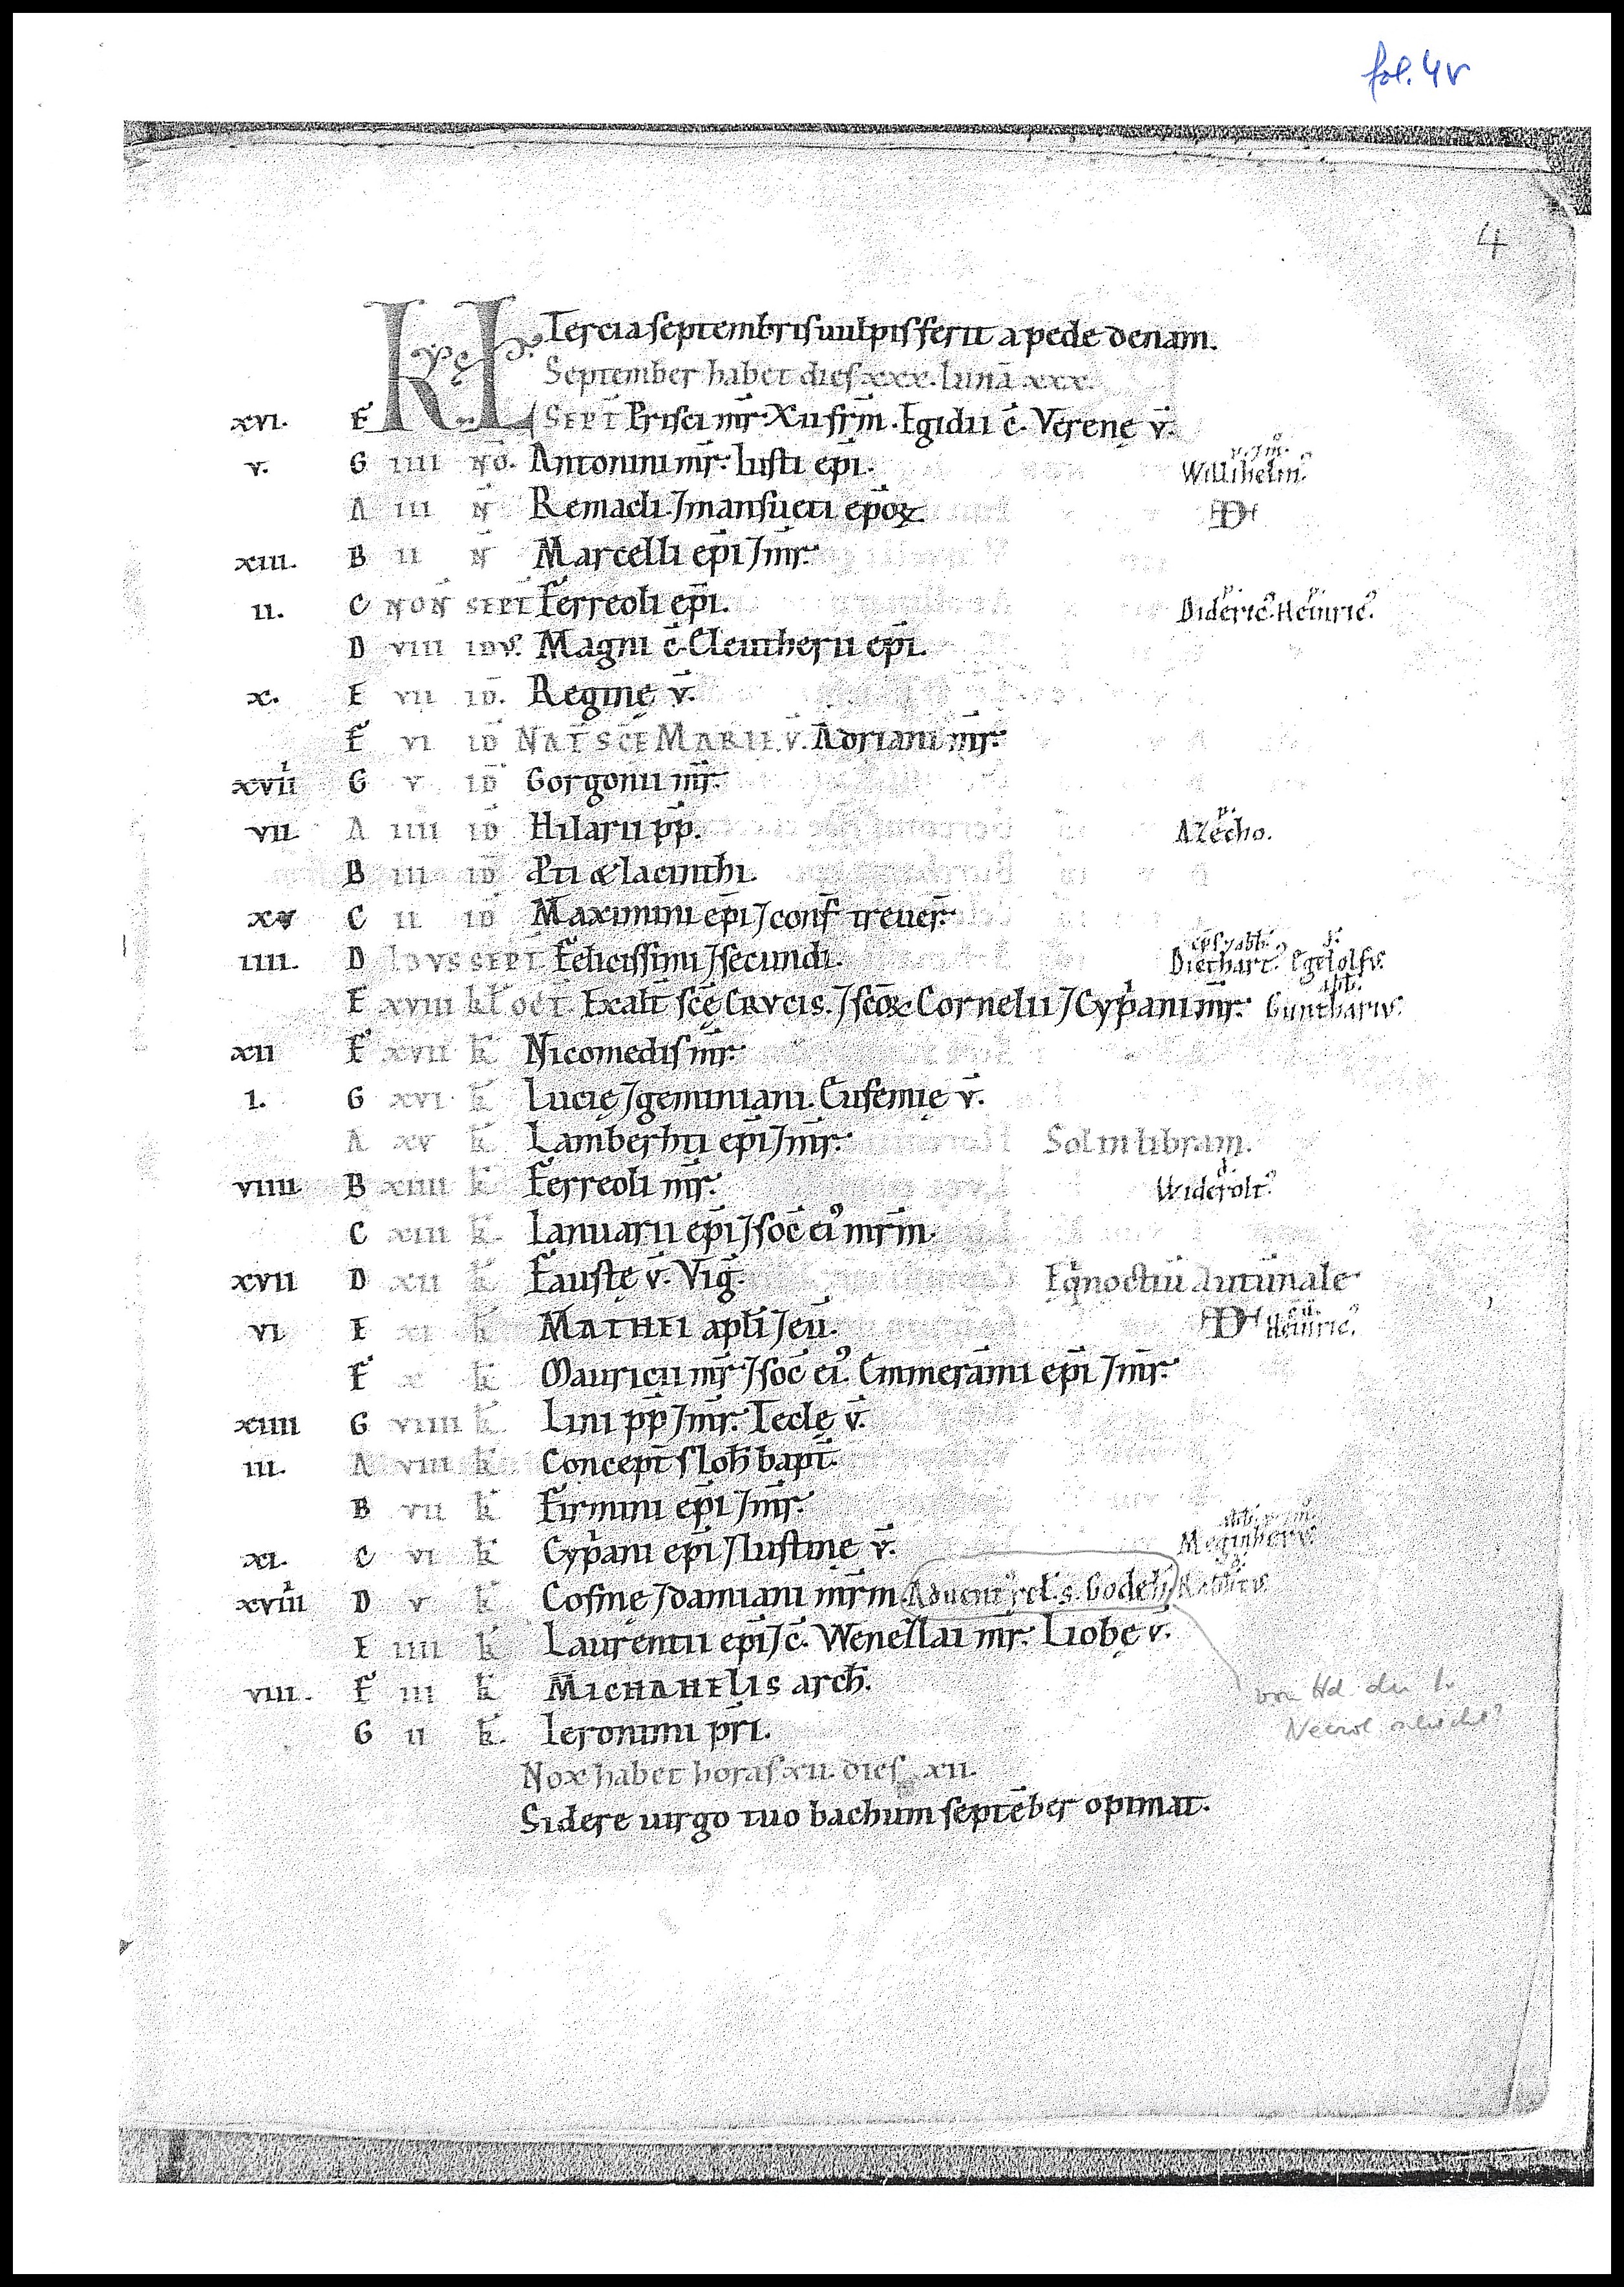 fol. 4v
4
KL Tercia septembris uulpis ferit a pede denam.
September habet dies xxx. luna xxx.
xvi. F SEPT̄ Prisci mr̄. Xusti m̄. Egidii c̄. Verenę v̄.
v. G iiii NŌ. Antonini mr̄. Iusti ep̄i. Willihelm᾽
A iii N̄ Remacli ⁊ mansueti ep̄oꝝ.
xiii. B ii N̄ Marcelli ep̄i ⁊ mr̄.
ii. C NOÑ SEPT̄ Ferreoli ep̄i. Dideric᾽. Heinric᾽.
D viii IDVS. Magni c̄. Eleutherii ep̄i.
x. E vii ID̄. Reginę v̄.
F vi ID̄ NAT̄ SCE MARIE V̄. Adriani mr̄.
xvii G v ID̄ Gorgonii mr̄.
vii A iiii ID̄ Hilarii pp̄. Azecho.
B iii ID̄ Pti & Iacinthi.
xv C ii ID̄ Maximini ep̄i ⁊ conf̄ treuer̄.
iiii. D IDVS SEPT̄ Felicissimi ⁊ secundi. ep̄s ⁊ abb. Diethart᾽. Egelolfus.
E xviii kl̄ oct̄. Exalt̄ scę̄ CRVCIS. ⁊ scōꝝ Cornelii ⁊ Cyp̄ani mr̄. abb. Guntharius.
xii F xvii k̄ Nicomedis mr̄.
i. G xvi k̄ Lucię ⁊ geminiani. Eufemię v̄.
A xv k̄ Lamberhti ep̄i ⁊ mr̄. Sol in libram.
viiii B xiiii k̄ Ferreoli mr̄. Widerolt᾽.
C xiii k̄. Ianuarii ep̄i ⁊ soc̄ ei᾽ mr̄m.
xvii D xii k̄ Faustę v̄. Viḡ. Eq̇noctiū Autūnale
vi E xi k̄ MATHEI apl̄i ⁊ eū. Heinric᾽.
F x k̄ Mauricii mr̄ ⁊ soc̄ ei᾽. Emmerāmi ep̄i ⁊ mr̄.
xiiii G viiii k̄. Lini pp̄ ⁊ mr̄. Teclę v̄.
iii. A viii k̄ Concept̄ s Ioh̄ bapt̄.
B vii k̄ Firmini ep̄i ⁊ mr̄.
xi. C vi k̄ Cyp̄ani ep̄i ⁊ Iustinę v̄. Meginherus.
xviii D v k̄ Cosmę ⁊ damiani mr̄m. Aduent᾽ rel. s. Godeh̄
E iiii k̄ Laurentii ep̄i ⁊ c̄. Wenezlai mr̄. Liobę v̄.
viii. F iii k̄ MICHAHELIS arch̄.
G ii k̄. Ieronimi pr̄i.
von Hd der 1.
Nox habet horas xii. dies xii.
Sidere uirgo tuo bachum septēber opimat.